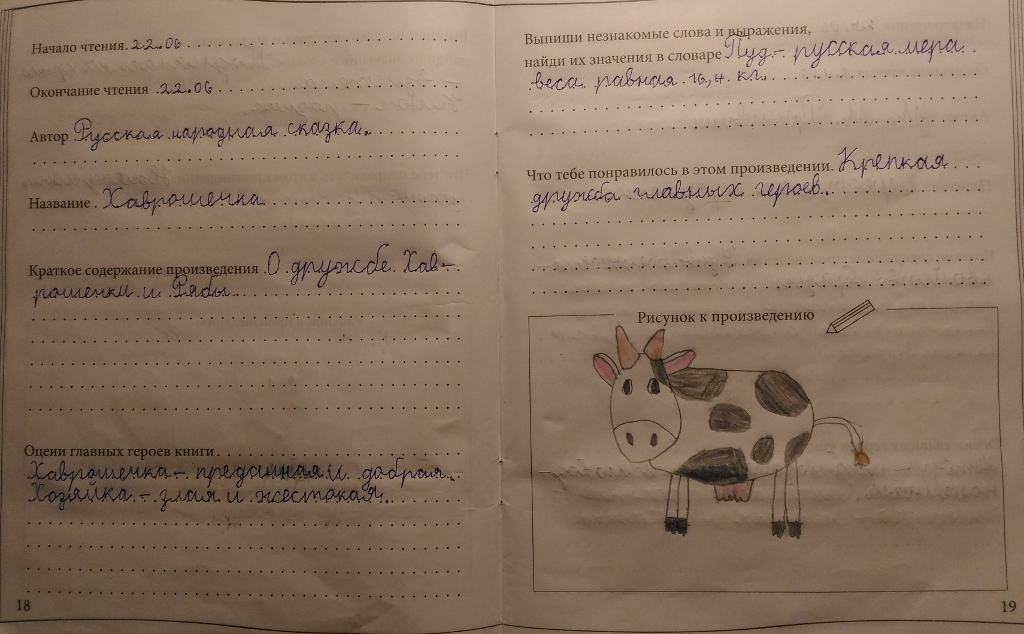 Начало чтения. 22.06
Окончание чтения .22.06
Автор Русская народная сказка.
Название . Хаврошечка
Краткое содержание произведения .О дружбе Хав-
рошечки и Рябы.
Оцени главных героев книги
Хаврошечка - преданная и добрая.
Хозяйка - злая и жестокая.
18
Выпиши незнакомые слова и выражения,
найди их значения в словаре Пуд - русская мера
веса равная 16,4 кг.
Что тебе понравилось в этом произведении. Крепкая
дружба главных героев.
Рисунок к произведению
19